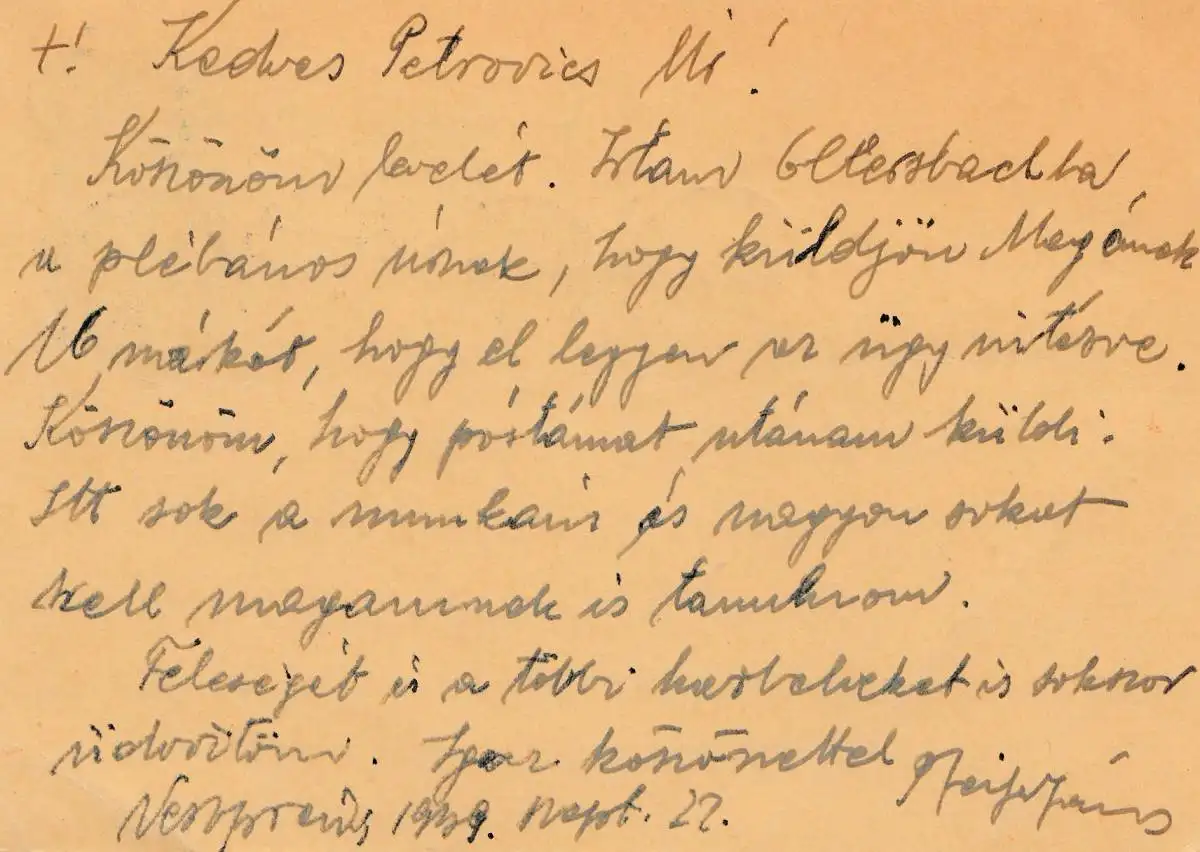 +! Kedves Petrovics Úr!
Köszönöm levelét. Írtam
a plébános úrnak, hogy küldjön Magának
16 márkát, hogy el legyen az ügy intézve.
Köszönöm, hogy póstámat utánam küldi.
Itt sok a munkám és nagyon sokat
kell magamnak is tanulnom.
Feleségét és a többi hazbelieket is sokszor
üdvözlöm. Igaz köszönettel
Veszprém, 1939. Szept. 22.